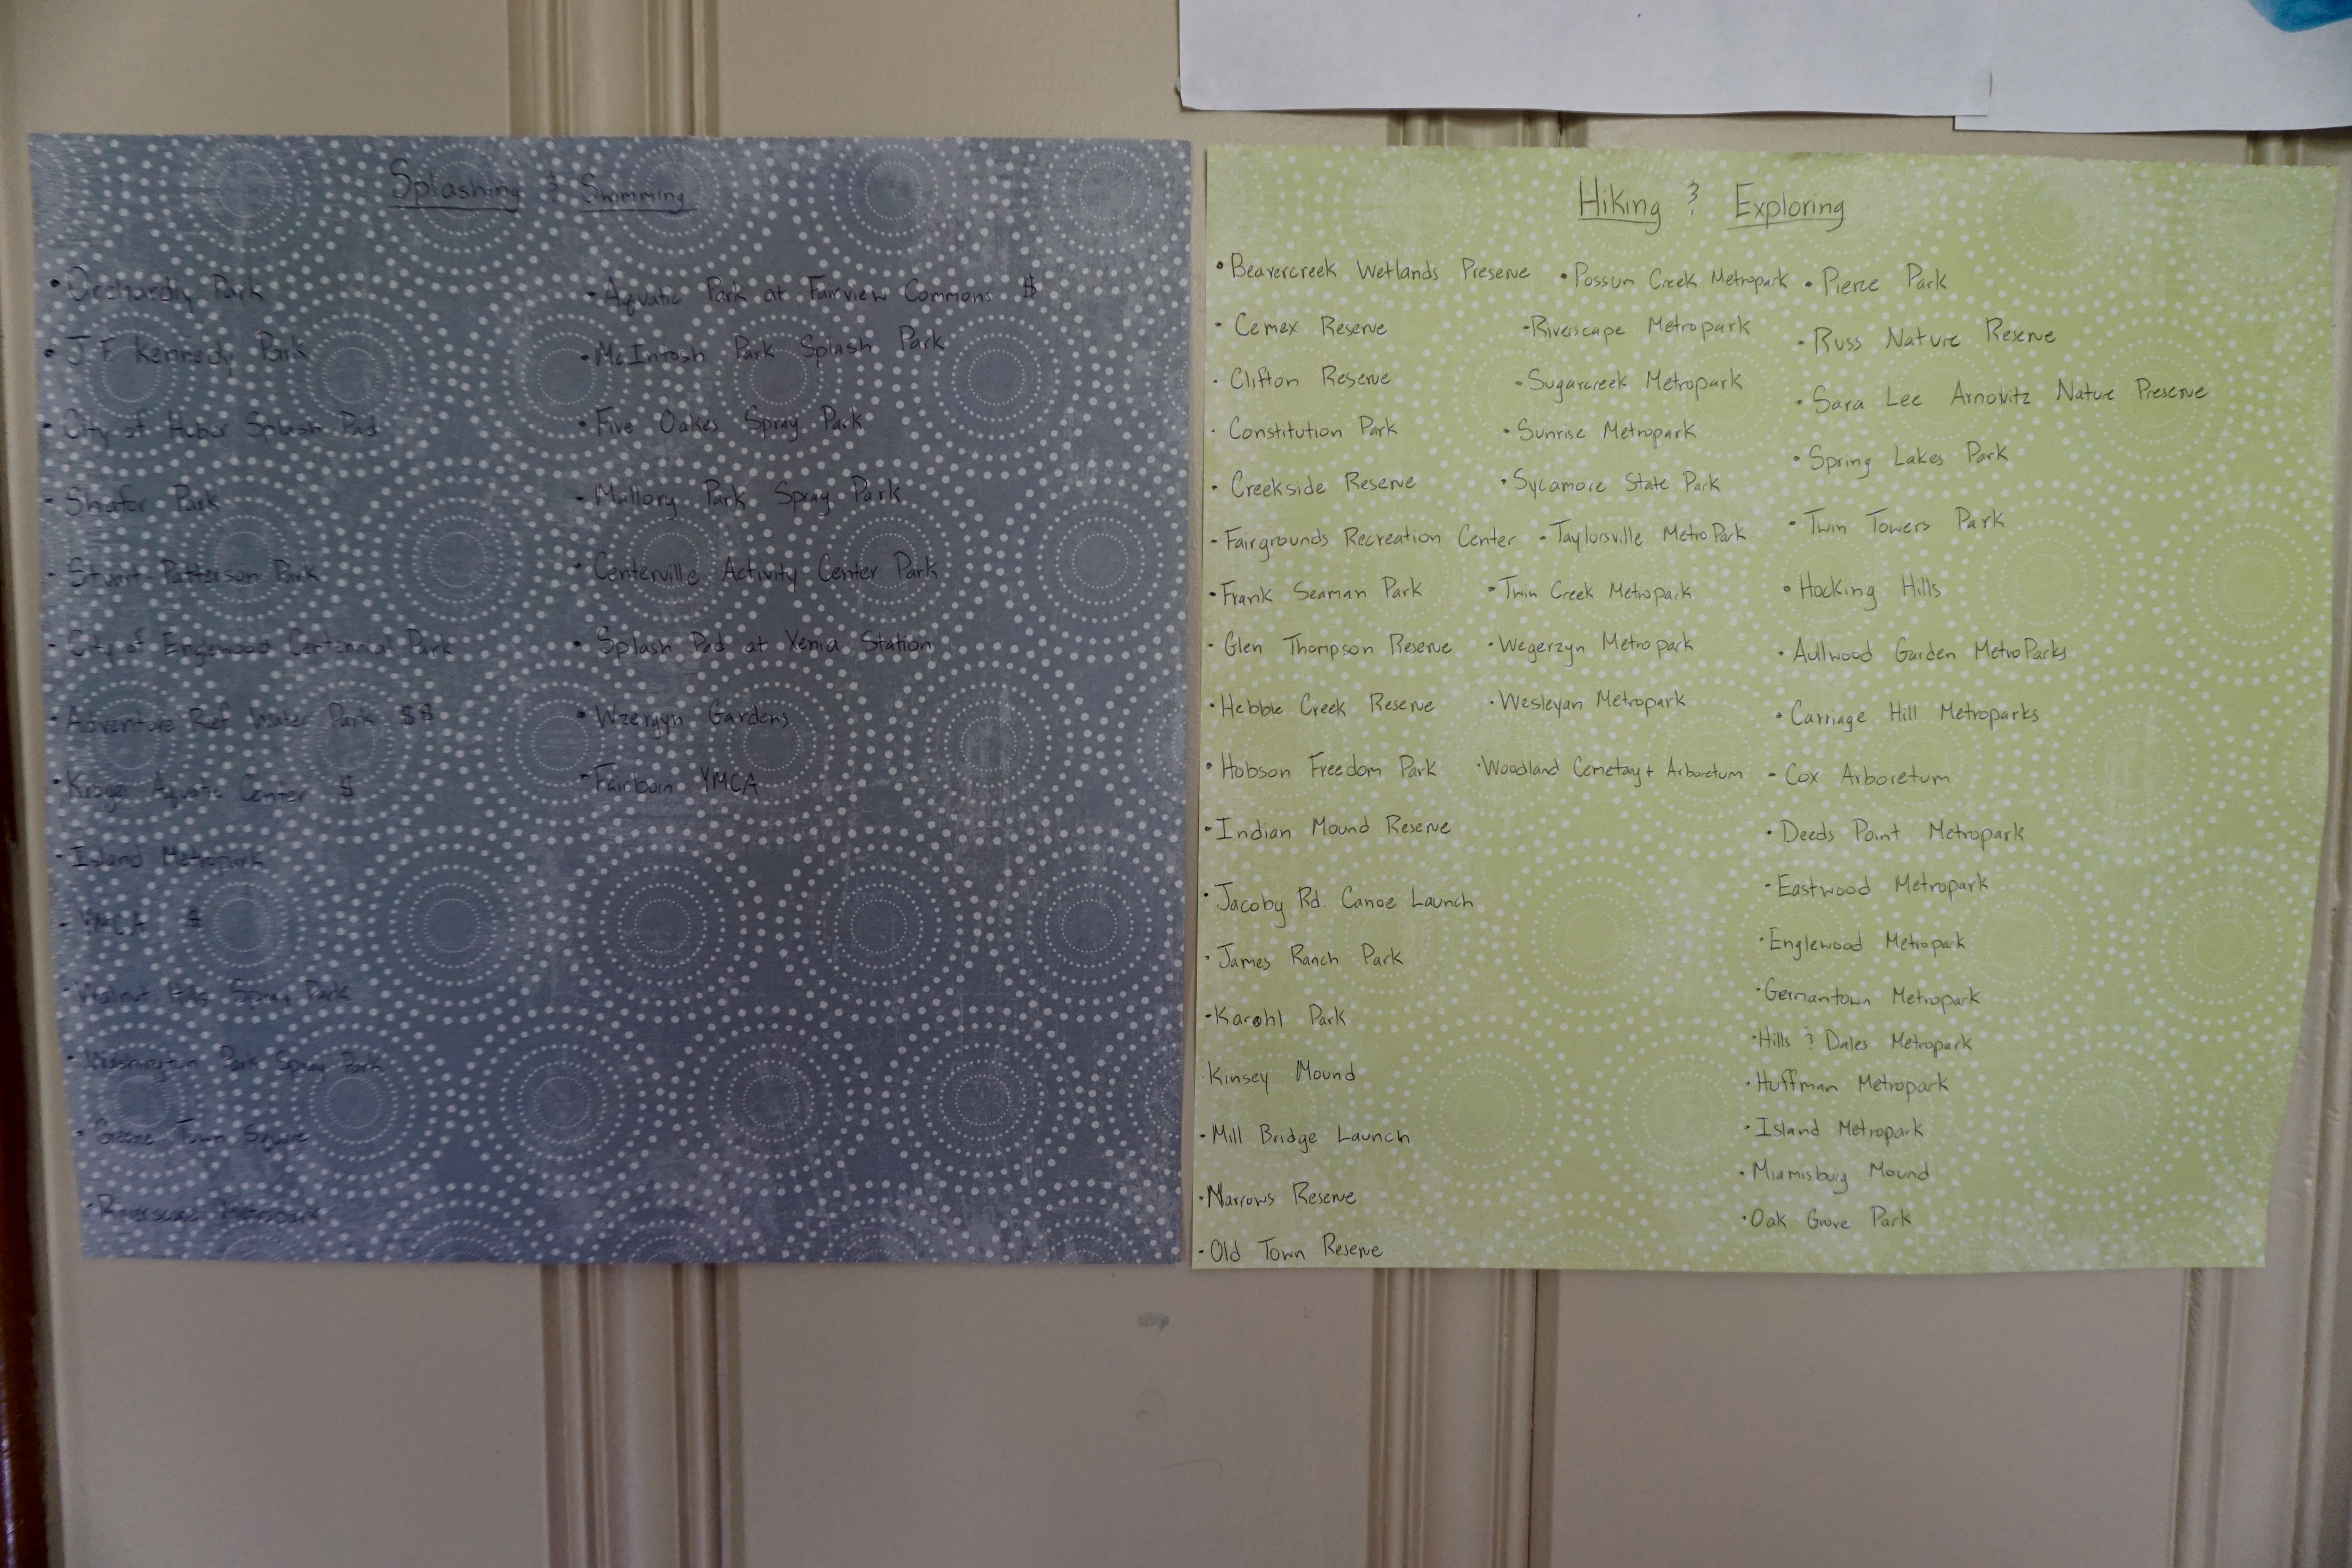 Splashing & Swimming
• Orchardly Park
• J.F. Kennedy Park
• City of Huber Splash Pad
• Shafor Park
• Stuart-Patterson Park
• City of Englewood Centennial Park
• Adventure Reef Water Park $$
• Kroger Aquatic Center $
• Island Metropark
• YMCA $
• Walnut Hills Spray Park
• Washington Park Spray Park
• Greene Town Square
• Riverscape Metropark
• Aquatic Park at Fairview Commons $
• McIntosh Park Splash Park
• Five Oakes Spray Park
• Mallory Park Spray Park
• Centerville Activity Center Park
• Splash Pad at Xenia Station
• Wzergyn Gardens
• Fairborn YMCA
Hiking & Exploring
• Beavercreek Wetlands Preserve
• Cemex Reserve
• Clifton Reserve
• Constitution Park
• Creekside Reserve
• Fairgrounds Recreation Center
• Frank Seaman Park
• Glen Thompson Reserve
• Hebble Creek Reserve
• Hobson Freedom Park
• Indian Mound Reserve
• Jacoby Rd. Canoe Launch
• James Ranch Park
• Karohl Park
Kinsey Mound
• Mill Bridge Launch
• Narrows Reserve
• Old Town Reserve
• Possum Creek Metropark
• Riverscape Metropark
• Sugarcreek Metropark
• Sunrise Metropark
• Sycamore State Park
• Taylorsville MetroPark
• Twin Creek Metropark
• Wegerzyn Metropark
• Wesleyan Metropark
• Woodland Cemetary + Arboretum
• Pierce Park
• Russ Nature Reserve
• Sara Lee Arnovitz Nature Preserve
• Spring Lakes Park
• Twin Towers Park
• Hocking Hills
• Aullwood Garden MetroParks
• Carriage Hill Metroparks
• Cox Arboretum
• Deeds Point Metropark
• Eastwood Metropark
• Englewood Metropark
• Germantown Metropark
• Hills & Dales Metropark
• Huffman Metropark
• Island Metropark
• Miamisburg Mound
• Oak Grove Park